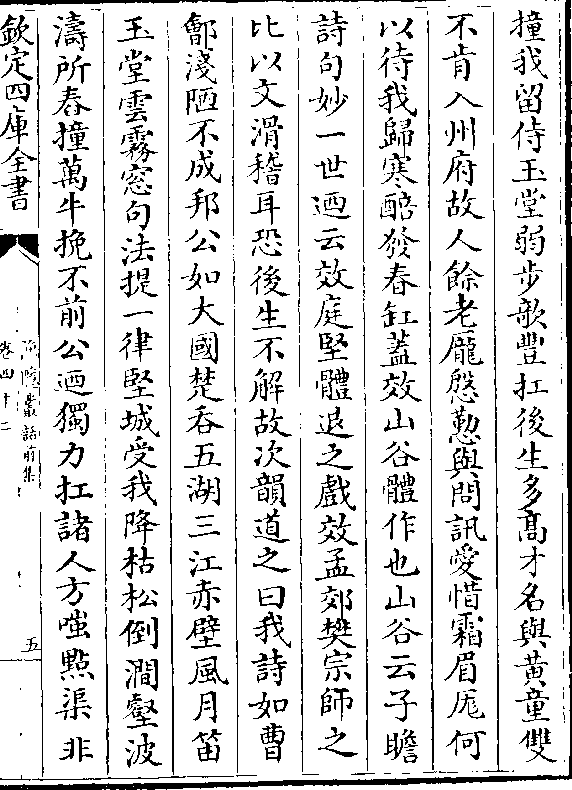 撞我留侍玉堂弱步欹豐扛後生多髙才名與黄童雙
不肯入州府故人餘老龐慇懃與問訊愛惜霜眉厖何
以待我歸寒醅發春缸蓋效山谷體作也山谷云子瞻
詩句妙一世廼云效庭堅體退之戲效孟郊樊宗師之
比以文滑稽耳恐後生不解故次韻道之曰我詩如曹
鄶淺陋不成邦公如大國楚吞五湖三江赤壁風月笛
玉堂雲霧窓句法提一律堅城受我降枯松倒澗壑波
濤所舂撞萬牛挽不前公廼獨力扛諸人方嗤點渠非
欽定四庫全書
漁隠叢話前集
卷四十二
五